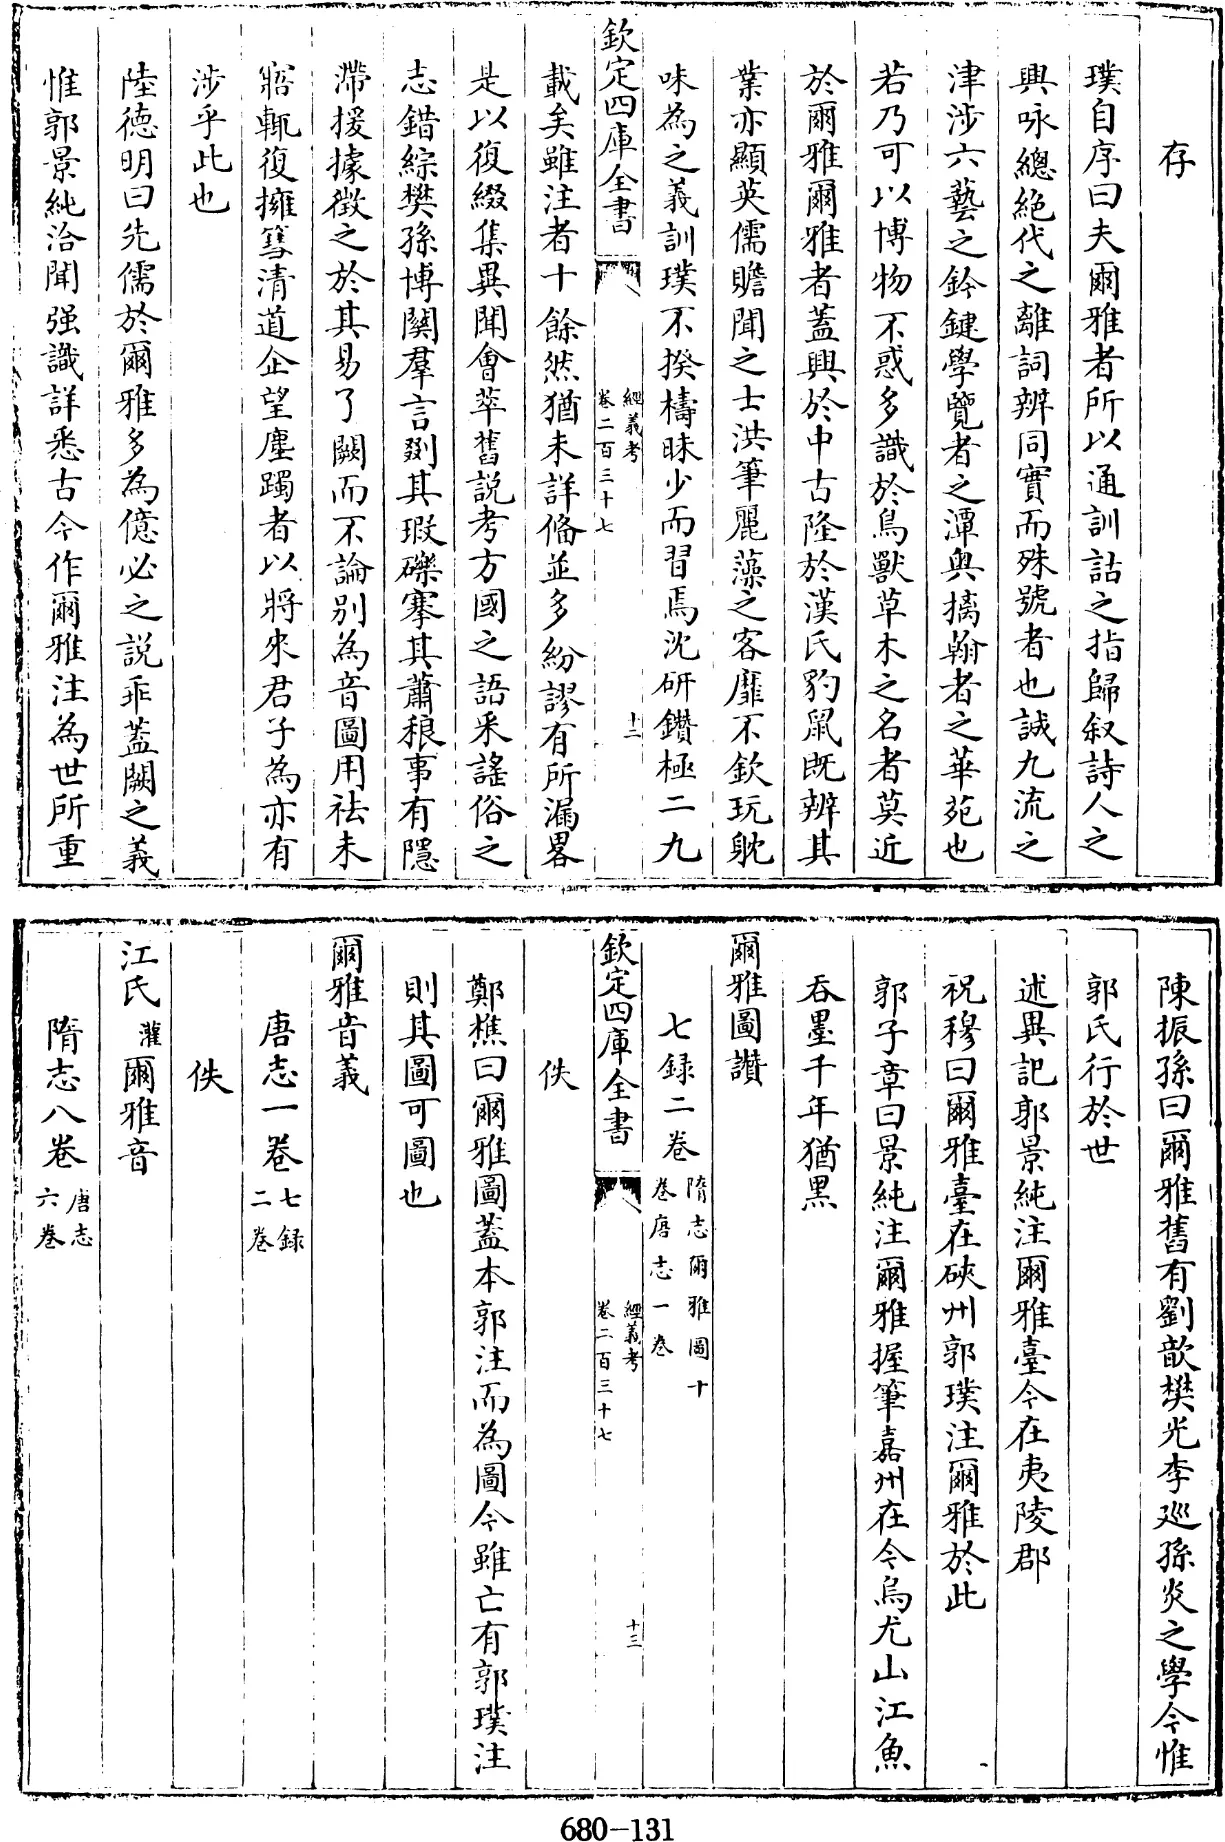 存
璞自序曰夫爾雅者所以通訓詁之指歸叙詩人之
興咏總絶代之離詞辨同實而殊號者也誠九流之
津涉六藝之鈐鍵學覽者之潭奥摛翰者之華苑也
若乃可以博物不惑多識於鳥獸草木之名者莫近
於爾雅爾雅者蓋興於中古隆於漢氏豹䑕既辨其
業亦顯英儒贍聞之士洪筆麗藻之客靡不欽玩躭
味為之義訓璞不揆檮昧少而習焉沈研鑽極二九
欽定四庫全書
經義考
卷二百三十七
十二
載矣雖注者十餘然猶未詳備並多紛謬有所漏畧
是以復綴集異聞會萃舊説考方國之語采謠俗之
志錯綜樊孫博關羣言剟其瑕礫搴其蕭稂事有隱
滯援據徵之於其易了闕而不論别為音圖用祛未
寤輒復擁篲清道企望塵躅者以將來君子為亦有
涉乎此也
陸德明曰先儒於爾雅多為億必之説乖蓋闕之義
惟郭景純洽聞强識詳悉古今作爾雅注為世所重
陳振孫曰爾雅舊有劉歆樊光李廵孫炎之學今惟
郭氏行於世
述異記郭景純注爾雅臺今在夷陵郡
祝穆曰爾雅臺在硤州郭璞注爾雅於此
郭子章曰景純注爾雅握筆嘉州在今烏尤山江魚
吞墨千年猶黑
爾雅圖讚
七録二卷隋志爾雅圖十卷唐志一卷
欽定四庫全書
經義考
卷二百三十七
十三
佚
鄭樵曰爾雅圖蓋本郭注而為圖今雖亡有郭璞注
則其圖可圖也
爾雅音義
唐志一卷七録二卷
佚
江氏灌爾雅音
隋志八卷唐志六卷
680-131